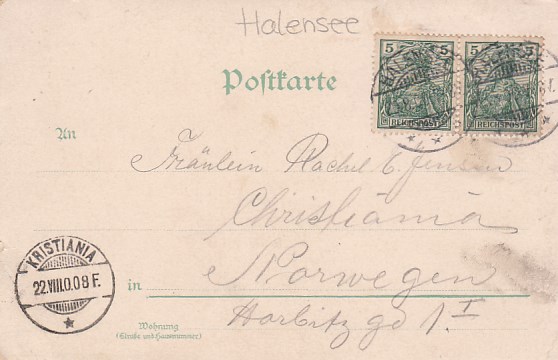 Halensee
5 5
REICHSPOST REICHSPOST
HALENSEE
Postkarte
An
Fräulein Rachel E. Jensen
Christiania
in Norwegen
KRISTIANIA
22.VIII.0.08 F.
Wohnung
(Straße und Hausnummer)
Harbitz gd 1. I